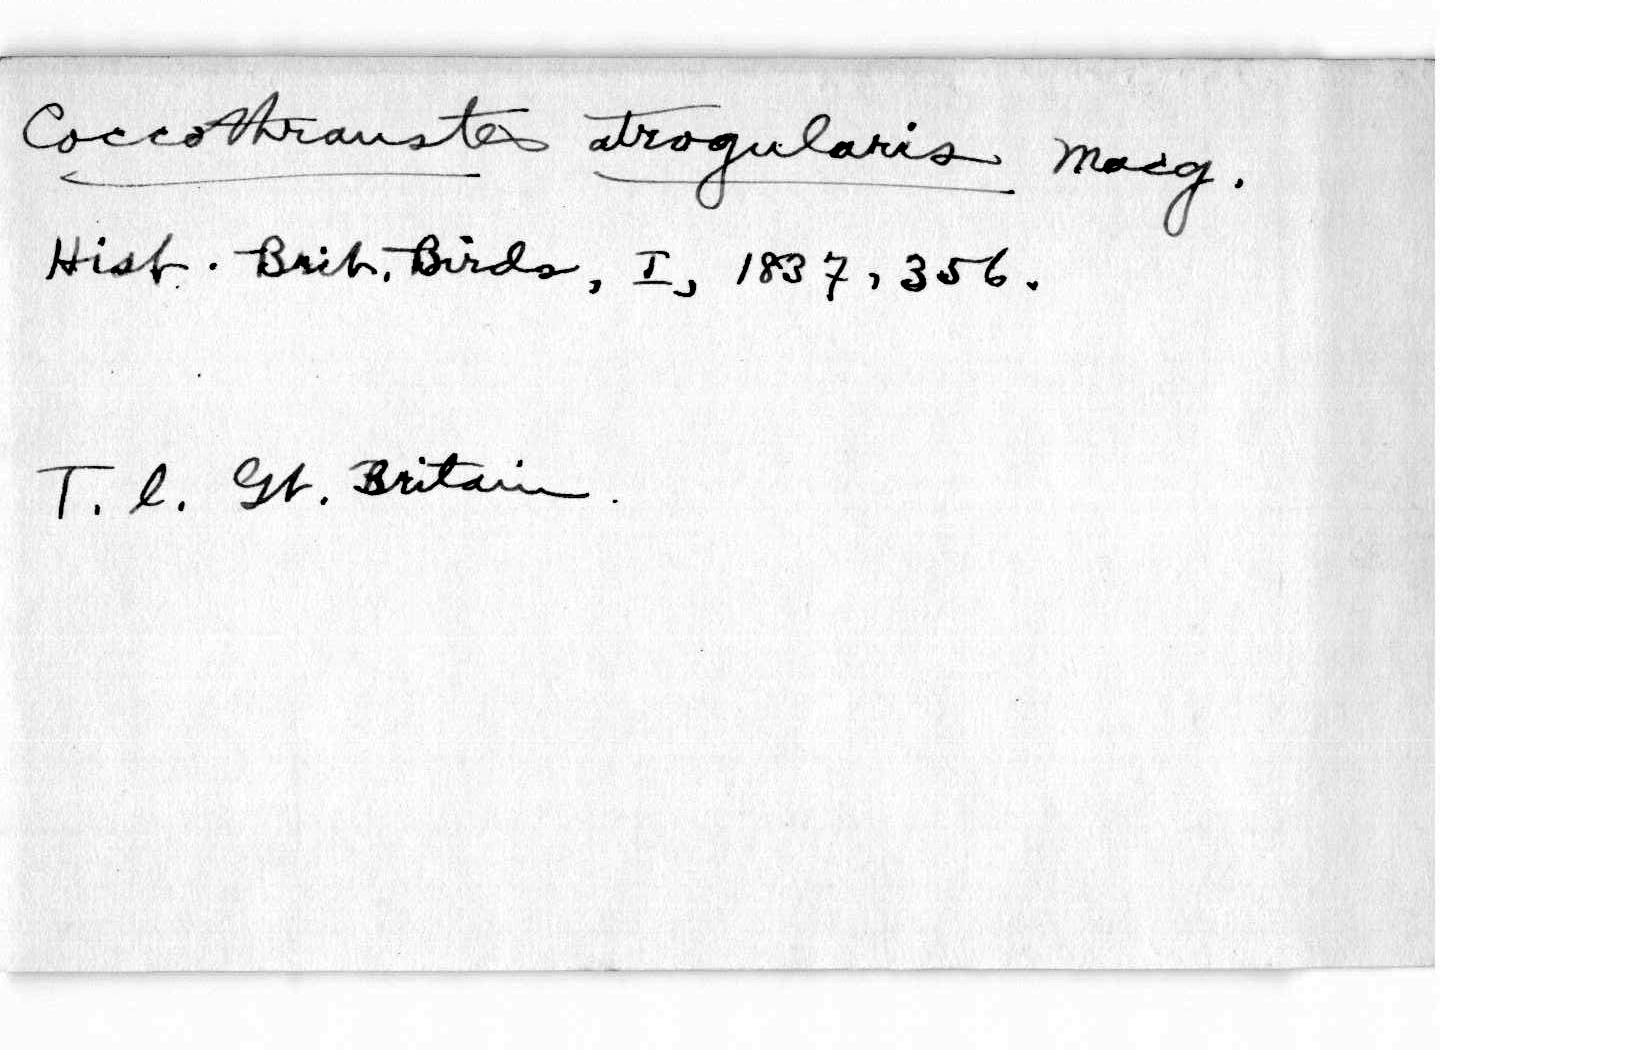 Coccothraustes atrogularis Macg.
Hist. Brit. Birds, I, 1837, 356.
T. l. Gt. Britain.